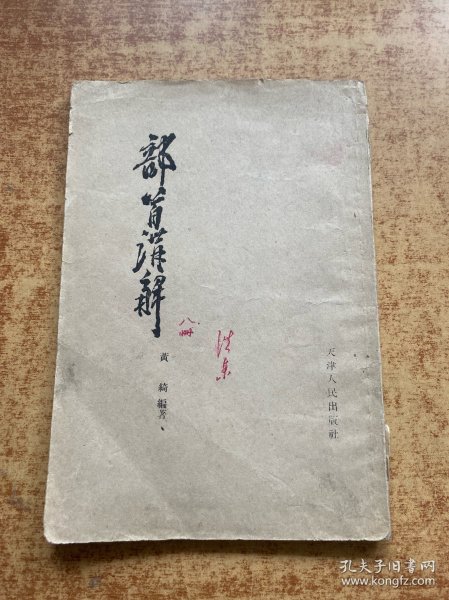 部首講解
黃綺編著
八冊
天津人民出版社
孔夫子旧书网
www.kongfz.com